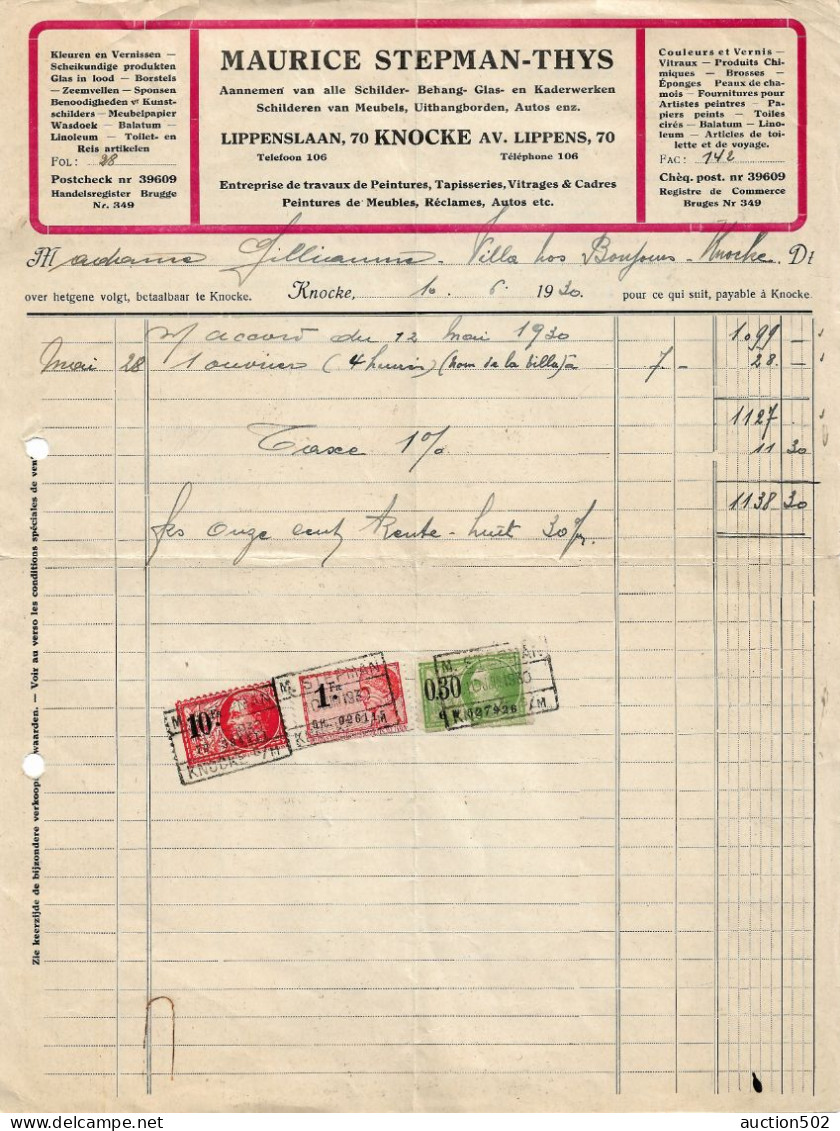 Kleuren en Vernissen —
Scheikundige produkten
Glas in lood — Borstels
— Zeemvellen — Sponsen
Benoodigheden vr Kunst-
schilders — Meubelpapier
Wasdoek — Balatum —
Linoleum — Toilet- en
Reis artikelen
FOL: 28
Postcheck nr 39609
Handelsregister Brugge
Nr. 349
MAURICE STEPMAN-THYS
Aannemen van alle Schilder- Behang- Glas- en Kaderwerken
Schilderen van Meubels, Uithangborden, Autos enz.
LIPPENSLAAN, 70 KNOCKE AV. LIPPENS, 70
Telefoon 106 Téléphone 106
Entreprise de travaux de Peintures, Tapisseries, Vitrages & Cadres
Peintures de Meubles, Réclames, Autos etc.
Couleurs et Vernis —
Vitraux — Produits Chi-
miques — Brosses —
Éponges Peaux de cha-
mois — Fournitures pour
Artistes peintres — Pa-
piers peints — Toiles
cirés — Balatum — Lino-
leum — Articles de toi-
lette et de voyage.
FAC: 142
Chèq. post. nr 39609
Registre de Commerce
Bruges Nr 349
Madame Villa nos Bonjours - Knocke. Dt
over hetgene volgt, betaalbaar te Knocke. Knocke, 10. 6. 1930. pour ce qui suit, payable à Knocke
s/ accord du 12 Mai 1930 1.099 —
Mai 28 1 ouvrier (4 heures) (nom de la villa) à 7. — 28. —
1127
Taxe 1% 11 30
1138 30
frs onze cent trente-huit 30
Zie keerzijde de bijzondere verkoopsvoorwaarden. — Voir au verso les conditions spéciales de vent
10 Fr
1 Fr
M. STEPMAN
1930
KNOCKE
0.30
M. STEPMAN
10 JUN 1930
auction502